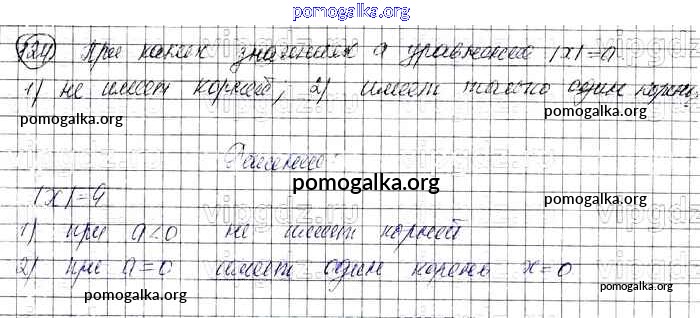 pomogalka.org
124 При каких значениях а уравнение |x|=а
1) не имеет корней, 2) имеет только один корень.
pomogalka.org pomogalka.org
Решение:
pomogalka.org
|x|=а pomogalka.org
1) при а<0 не имеет корней
2) при а=0 имеет один корень x=0
pomogalka.org pomogalka.org